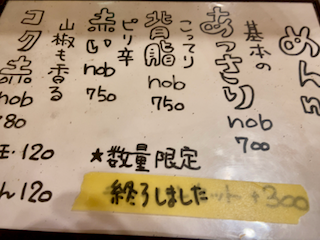 めん
基本の
あっさり
nob
700
こってり
背脂
nob
750
ピリ辛
赤い
nob
750
山椒も香る
コク赤
nob
780
120
ん120
★数量限定
終了しました
ット +300